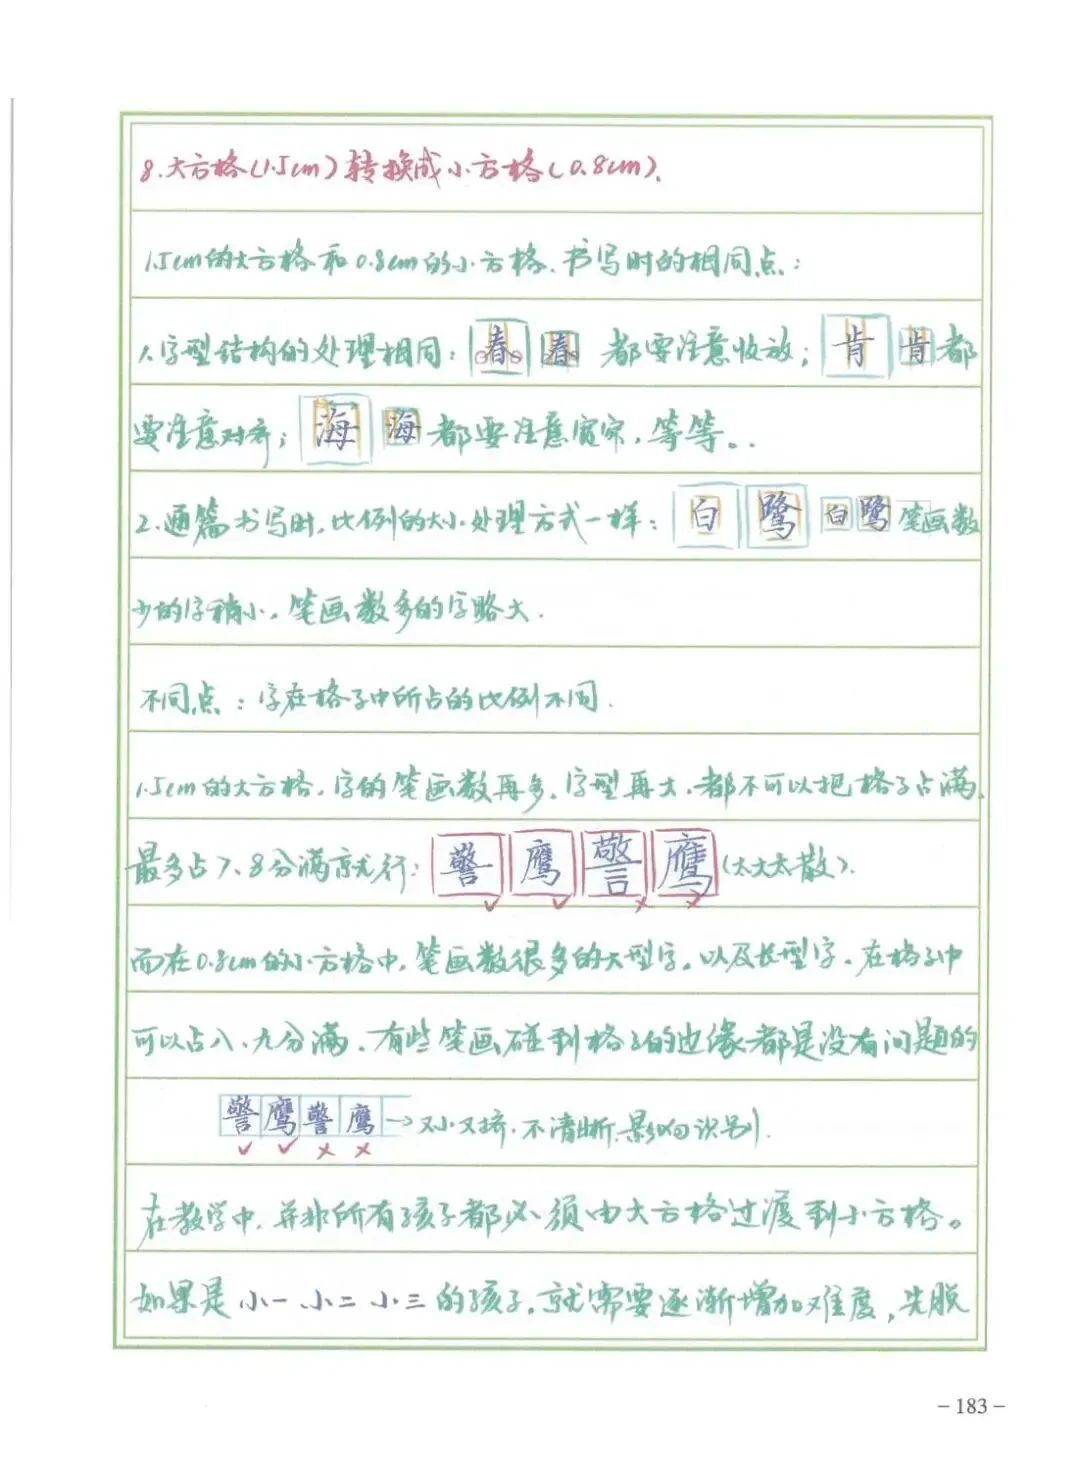 8.大方格(1.5cm)转换成小方格(0.8cm).
1.5cm的大方格和0.8cm的小方格.书写时的相同点:
1.字型结构的处理相同: 春 春 都要注意收放; 肯 肯 都
要注意对齐; 海 海 都要注意宽窄,等等。.
2.通篇书写时,比例的大小处理方式一样: 白 鹭 白 鹭 笔画数
少的字稍小,笔画数多的字略大.
不同点:字在格子中所占的比例不同.
1.5cm的大方格,字的笔画数再多,字型再大,都不可以把格子占满,
最多占7、8分满就行: 警 鹰 警 鹰 (太大太散).
✓ ✓ × ×
而在0.8cm的小方格中,笔画数很多的大型字,以及长型字.在格子中
可以占八、九分满.有些笔画碰到格子的边缘都是没有问题的
警 鹰 警 鹰 →又小又挤.不清晰.影响识别.
✓ ✓ × ×
在教学中,并非所有孩子都必须由大方格过渡到小方格。
如果是小一、小二小三的孩子,就需要逐渐增加难度,先脱
-183-